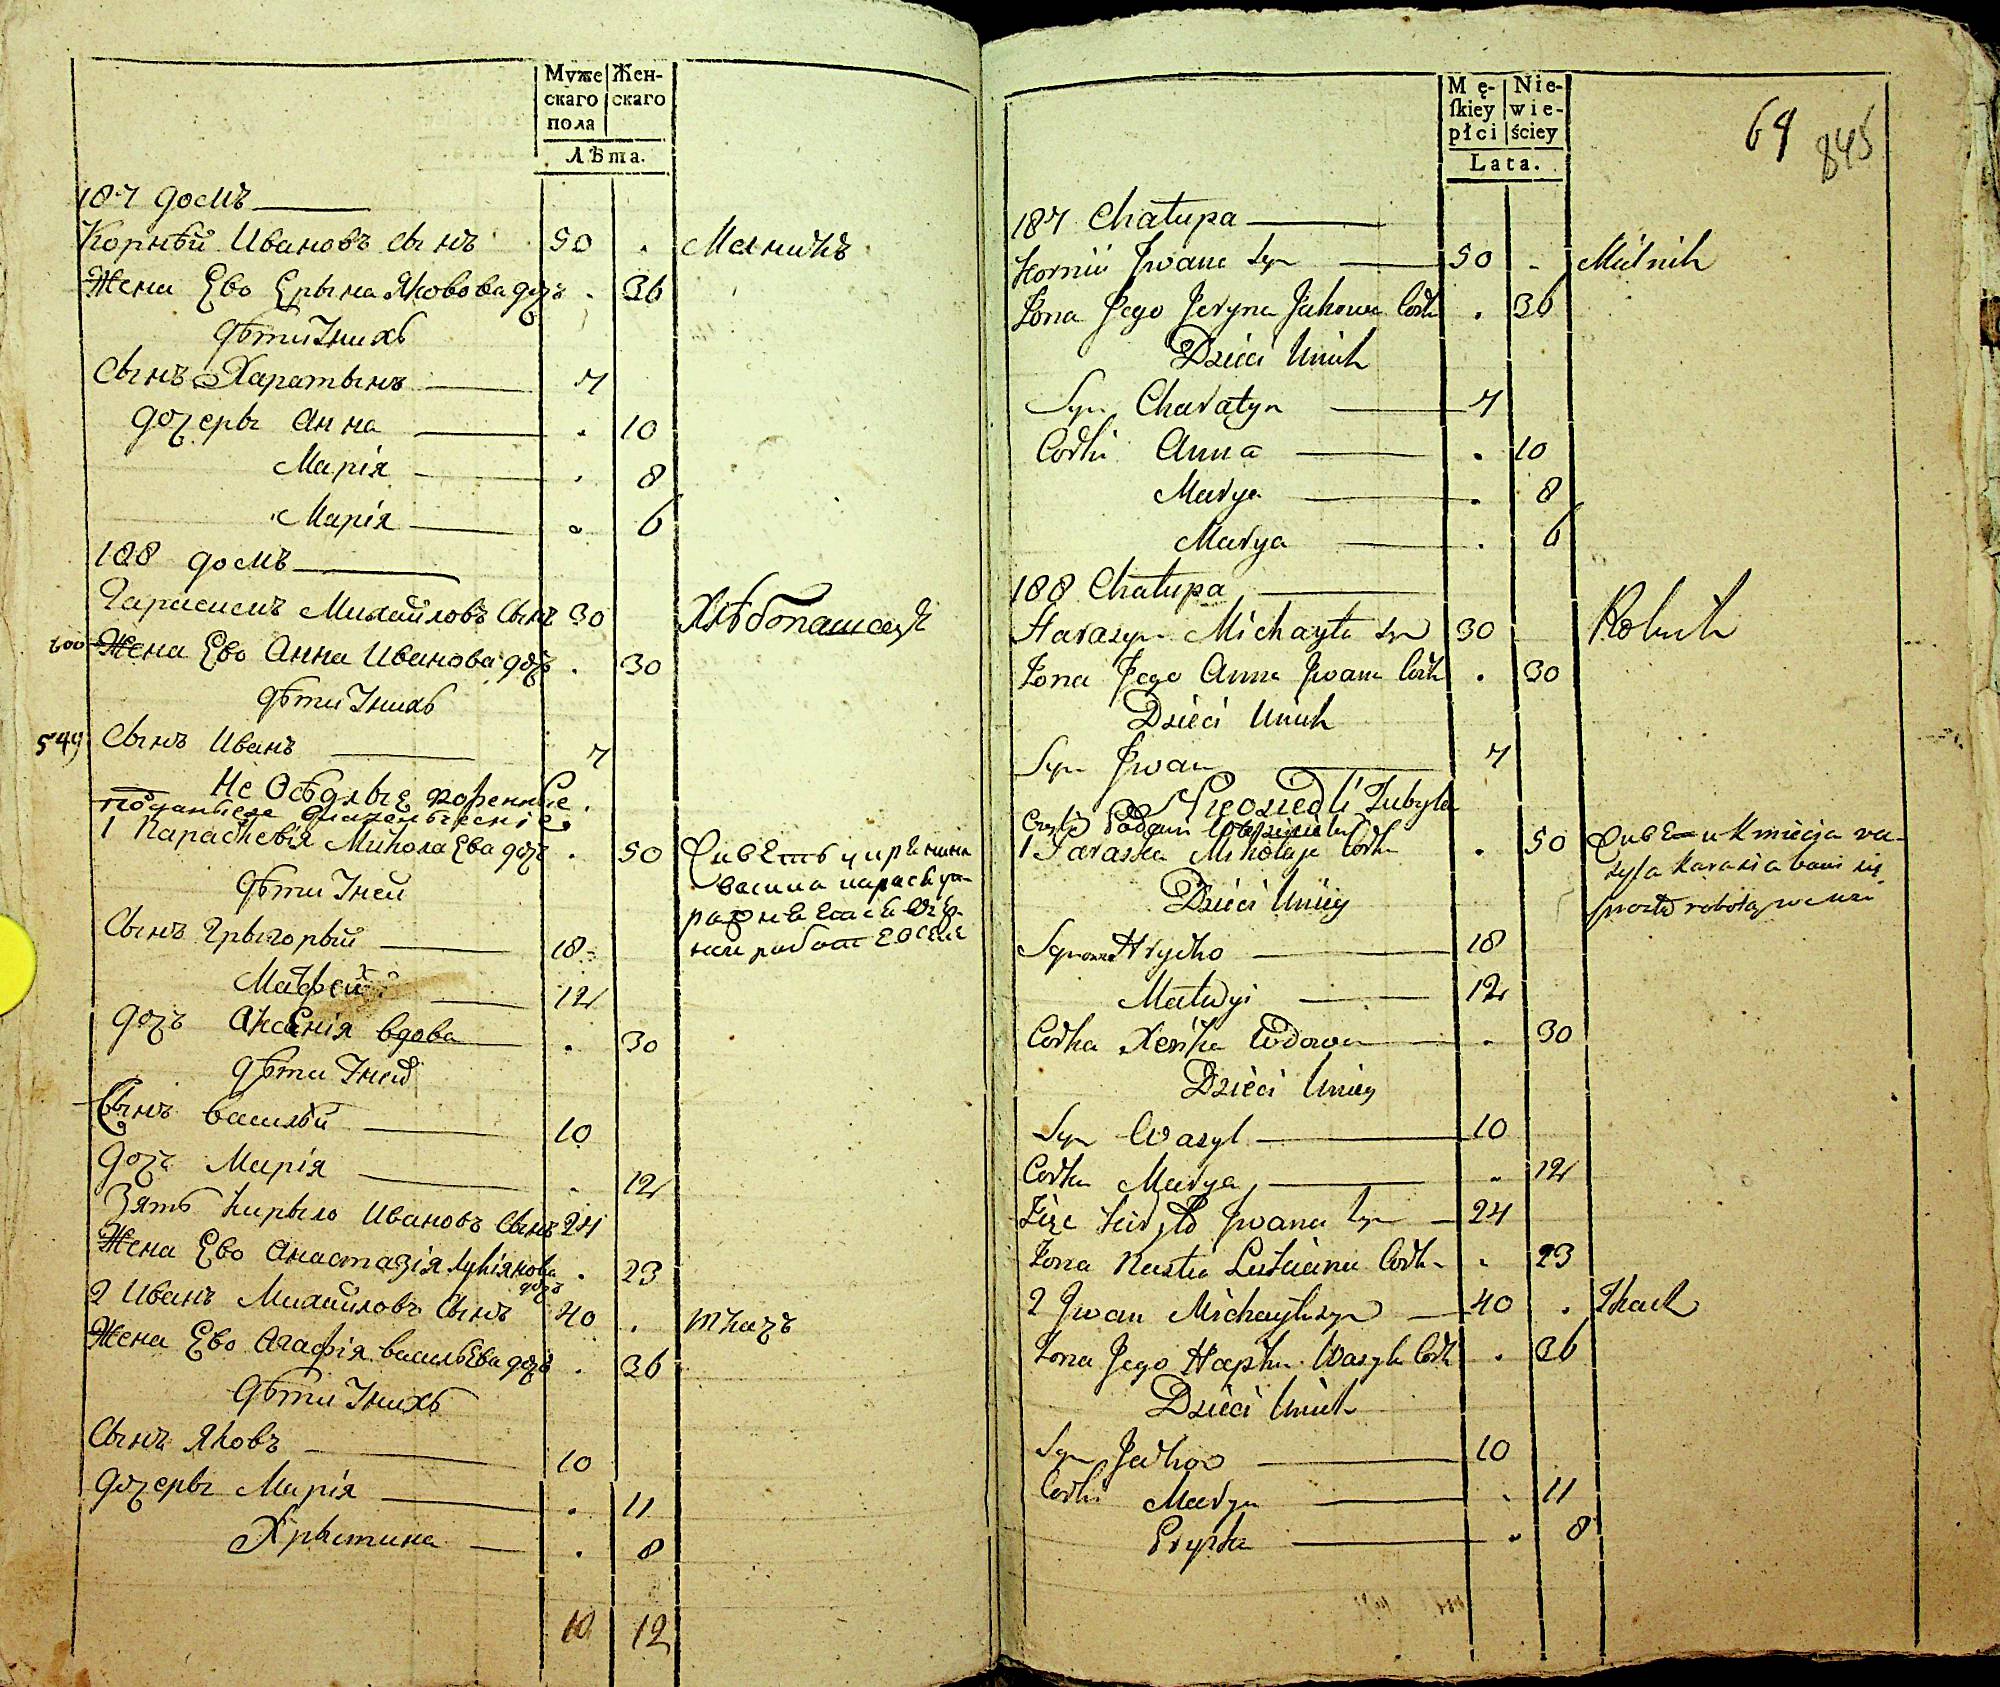 Муже
скаго
пола
Жен-
скаго
Лѣта.
187 домъ
Корнѣй Ивановъ сынъ 50 . Мелникъ
Жена Ево Ерына Яковова дочъ . 36
дѣти Iнихъ
Сынъ Харатынъ 7
дочеры Анна . 10
Марія . 8
Марія . 6
188 домъ
Гарасимъ Михайловъ Сынъ 30 Хлѣбопашецъ
600 Жена Ево Анна Иванова дочъ . 30
дѣти Iнихъ
549 Сынъ Иванъ 7
Не Осѣдлые коренные
1 Парасkевія Миkолаева дочъ . 50
дѣти Iней
Сынъ Грыгорый 18
Матфей 12
дочъ Аксенія вдова . 30
дѣти Iней
Сынъ Василѣй 10
дочъ Марія . 12
Зять Кирыло Ивановъ Сынъ 24
Жена Ево Анастазія Лукіянова . 23
дочъ
2 Иванъ Михайловъ Сынъ 40 . ткачъ
Жена Ево Агафія васильева дочъ . 36
дѣти Iнихъ
Сынъ Яковъ 10
дочеры Марія . 11
Хрыстина . 8
10 12
Mę-
ſkiey
płci
Nie-
wie-
ściey
Lata.
64 845
187 Chałupa
Kornii Jwana Syn 50 . Milnik
Żona Jego Jeryna Jakowa Corka . 36
Dzieci Unich
Syn Charatyn 7
Corki Anna . 10
Marya . 8
Marya . 6
188 Chałupa
Harasym Michayła Syn 30 Rolnik
Żona Jego Anna Jwana Cork . 30
Dzieci Unich
Syn Jwan 7
Nieosiedli
1 Paraska Mikołaja Corka . 50
Dzieci Uniey
Synowie Hryćko 18
Matwyi 12
Corka Xenka Wdowa . 30
Dzieci Uniey
Syn Wasyl 10
Corka Marya . 12
Zięć Kiryło Jwana Syn 24
Żona Nastia Lukiana Cork . 23
2 Jwan Michayła syn 40 . Tkach
Żona Jego Hapka Wasyla Cork . 36
Dzieci Unich
Syn Jackow 10
Corki Marya . 11
Crystka . 8